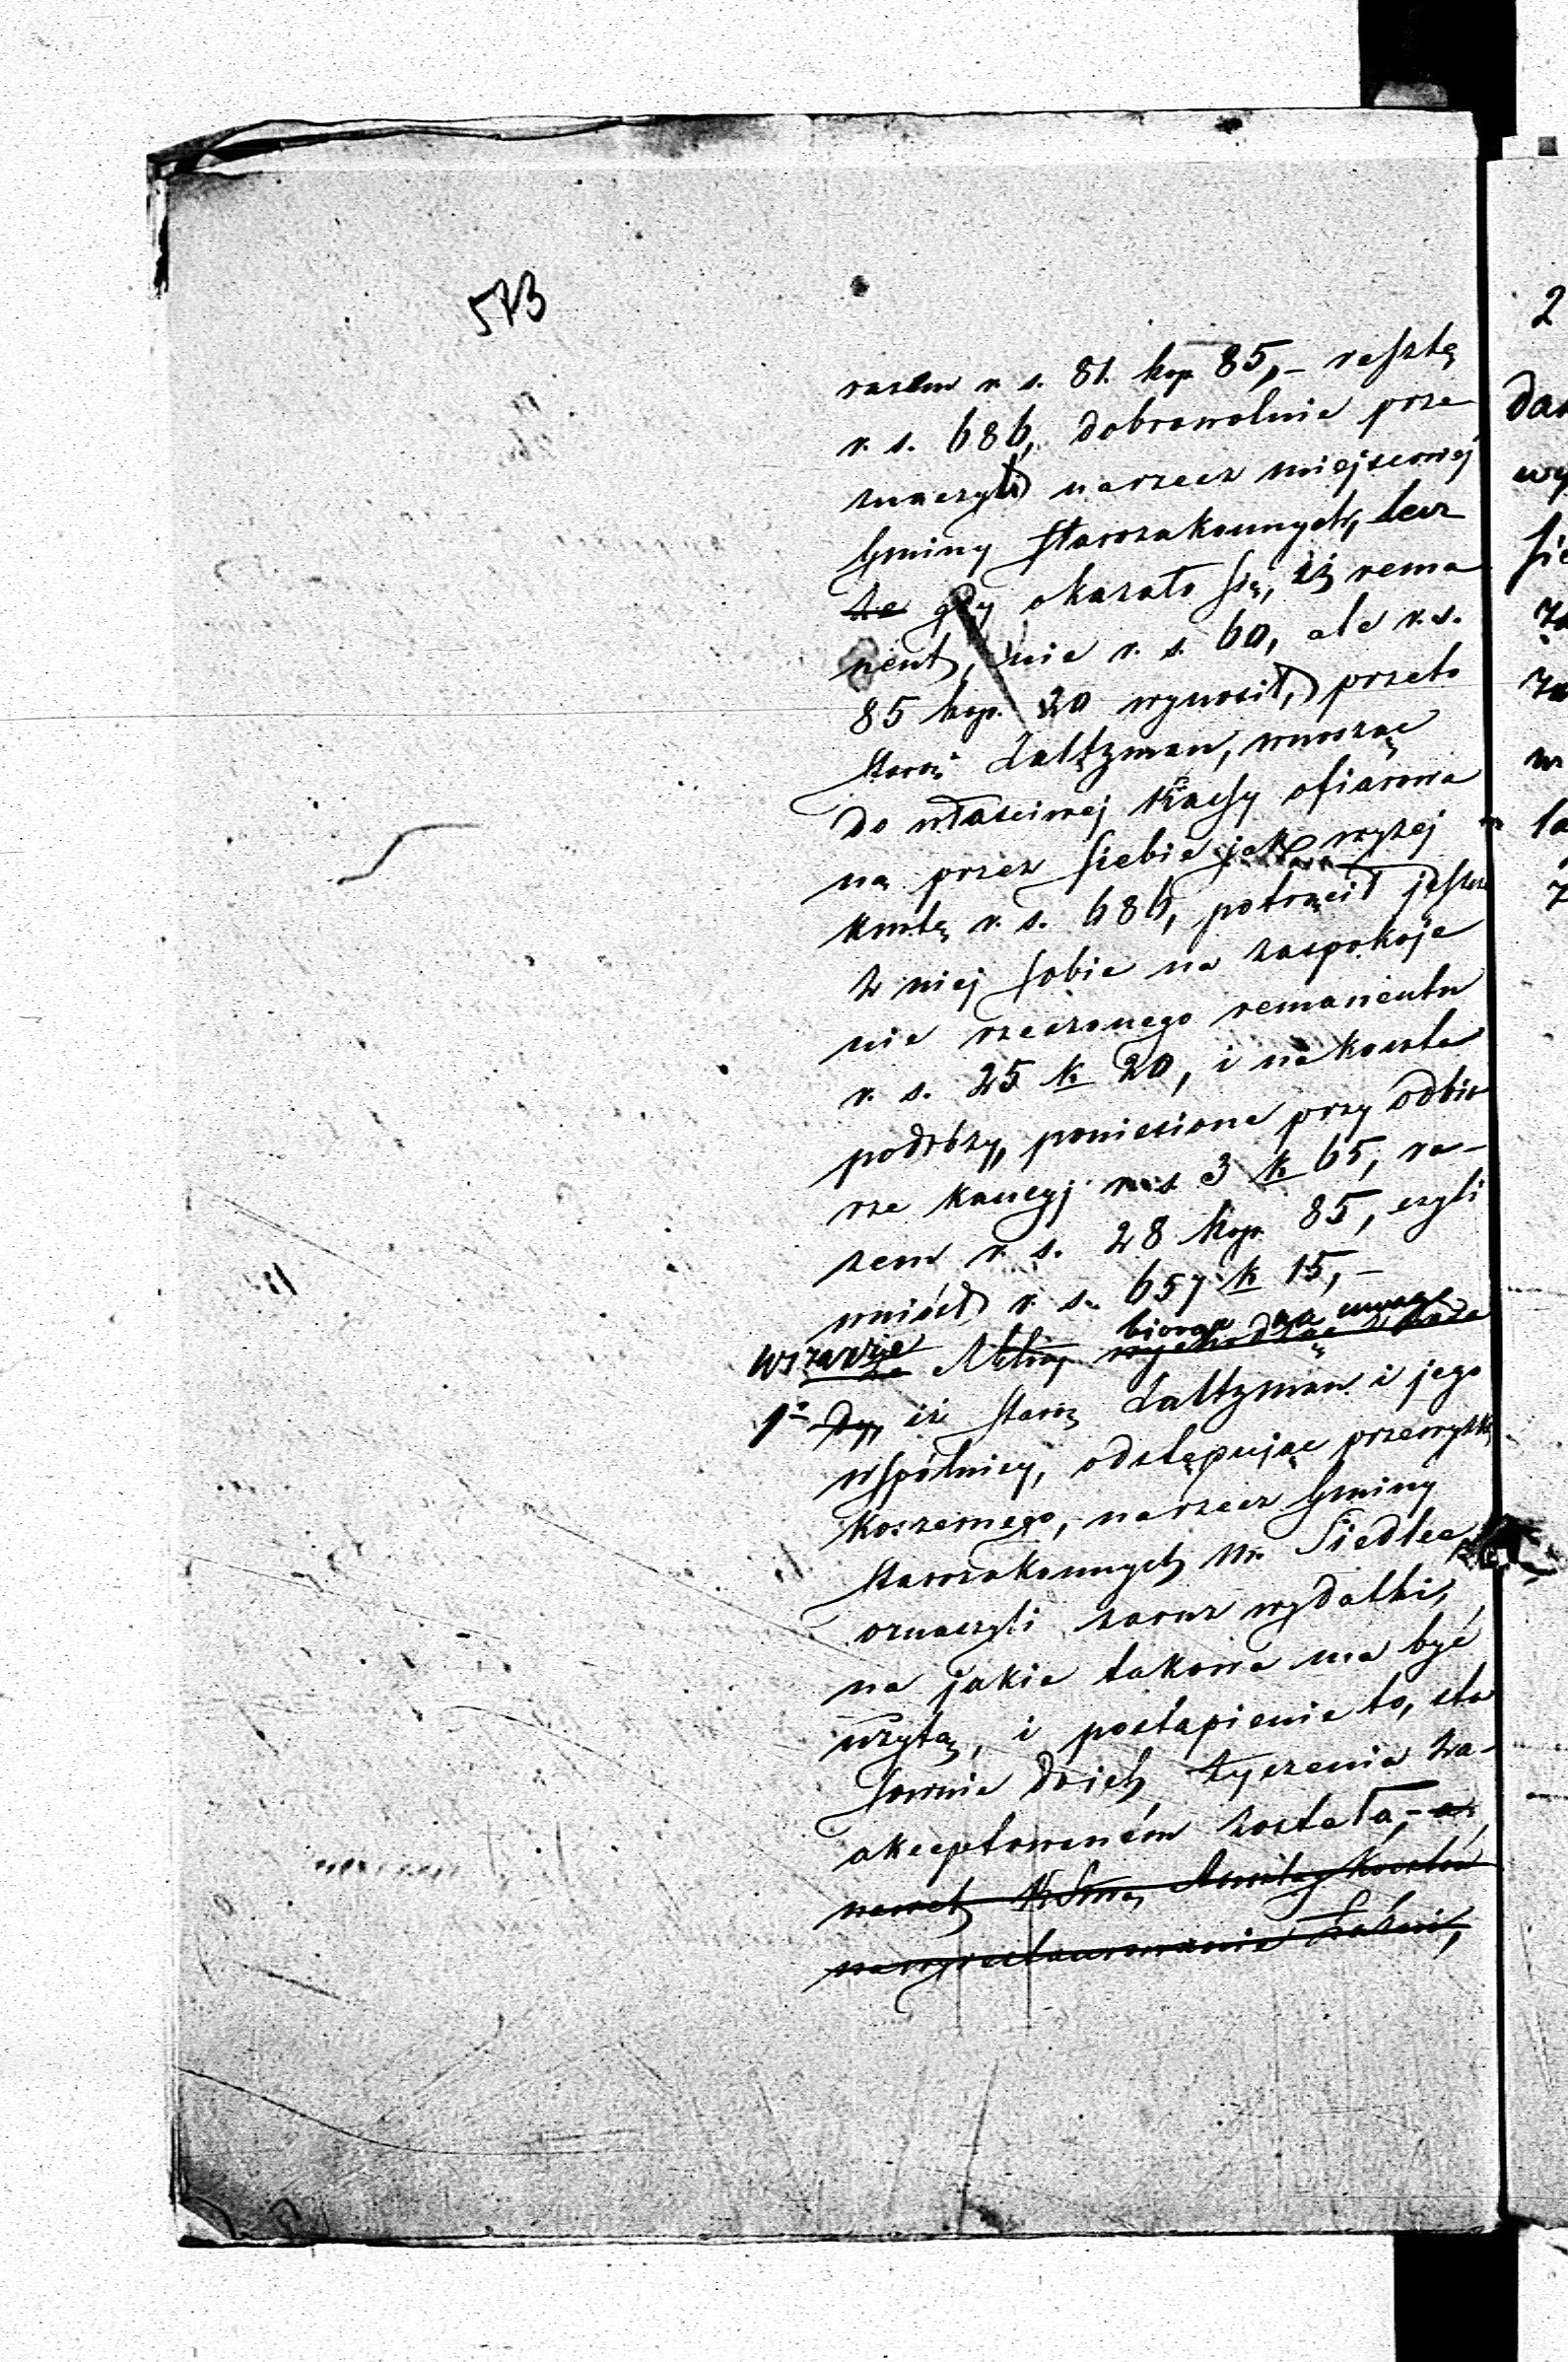 573
razem r. s. 81. kop. 85,- resztę
r. s. 686, dobrowolnie prze
znaczyli na rzecz miejscowej
Gminy Starozakonnych, lecz
że gdy okazało się, iż rema
nent, nie r. s. 60, ale r. s.
85 kop. 20 wynosił, przeto
Staroz Saltzman, wnosząc
do właściwej Kassy ofiarowa
ną przez siebie jak wyżej
kwotę r. s. 686, potrącił jeszcze
z niej sobie na zaspokoje
nie rzeczonego remanentu
r. s. 25 k 20, i na koszta
podróży, poniesione przy odbio
rze kaucyj r. s. 3 k 65, ra-
zem r. s. 28 kop. 85, czyli
wniósł r. s. 657 k 15,-
biorąc na uwagę
W zarzie wychodząc z zasa
1° dy, iż Staroz Saltzman i jego
wspólnicy, odstępując przewyżkę
koszernego, na rzecz Gminy
Starozakonnych M. Siedlec
oznaczyli zaraz wydatki,
na jakie takowa ma być
użytą, i postąpienie to, sto
sownie do ich życzenia za-
akceptowaném zostało,- a
nawet koszta
na wyrestaurowanie Łaźni,
2